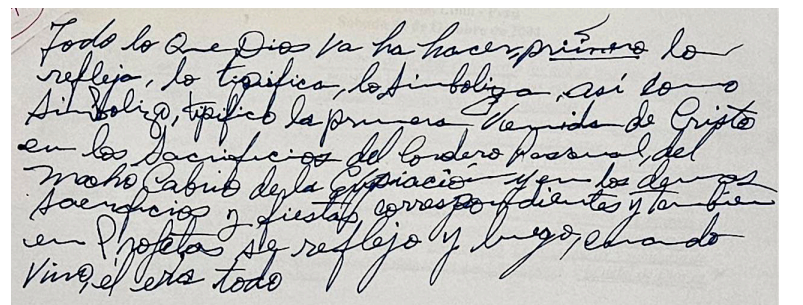 Todo lo que Dios va ha hacer, primero lo
refleja, lo tipifica, lo simboliza, así como
simbolizo, tipifico la primera Venida de Cristo
en los Sacrificios del Cordero Pascual, del
Macho Cabrío de la Expiación y en los demas
sacrificios y fiestas correspondientes y tambien
en Profetas, se reflejo y luego, cuando
vino, el era todo